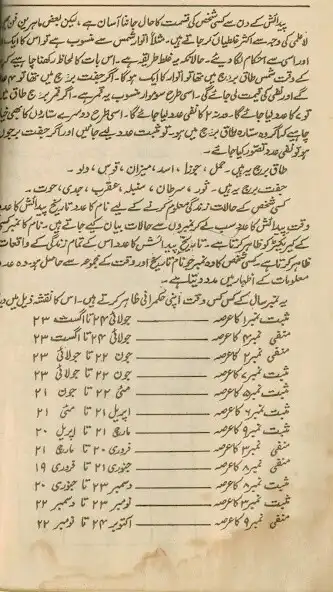 پیدائش کے دن سے کسی شخص کی قسمت کا حال جاننا آسان ہے، لیکن بعض ماہرین فن بھی
لاعلمی کی وجہ سے اکثر غلطیاں کر جاتے ہیں۔ مثلاً اتوار شمس سے منسوب ہے تو اس کا ایک
اور اسی سے احکام لگا دیئے۔ حالانکہ یہ غلط طریقہ ہے۔ اس بات کا لحاظ رکھنا چاہیے کہ
کے وقت شمس طاق برج میں تھا تو اتوار کا ایک ہوگا۔ اگر جفت برج میں تھا تو ۴
گے اور نفی کی قیمت لی جائے گی۔ اسی طرح سوموار منسوب بہ قمر ہے۔ اگر قمر برج طاق میں
تو ۷ عدد لیا جائے گا۔ ورنہ ۲ عدد نفی لیا جائے گا۔ اسی طرح دوسرے ستاروں کا بھی
چاہیے کہ اگر وہ ستارہ طاق برج میں ہو۔ تو مثبت عدد لیے جائیں اور اگر جفت برجوں
ہو تو نفی عدد تصور کیا جائے۔
طاق برج یہ ہیں۔ حمل، جوزا، اسد، میزان، قوس، دلو۔
جفت برج یہ ہیں۔ ثور، سرطان، سنبلہ، عقرب، جدی، حوت۔
کسی شخص کے حالات زندگی معلوم کرنے کے لیے نام کا عدد تاریخ پیدائش کا عدد
وقت پیدائش کا عدد سب کے نمبروں سے حالات بیان کیے جاتے ہیں۔ نام کا نمبر کسی
کے کیریکٹر کو ظاہر کرتا ہے۔ تاریخ پیدائش کا عدد اس کے تمام زندگی کے واقعات
ظاہر کرتا ہے کسی شخص کا وہ نمبر جو نام تاریخ اور وقت کے مجموعہ سے حاصل ہو وہ عدد
معلومات کے اظہار میں مدد دیتا ہے۔
یہ نمبر سال کے کس کس وقت اپنی حکمرانی ظاہر کرتے ہیں۔ اس کا نقشہ ذیل میں
مثبت نمبر ۱ کا عرصہ ــــــــ جولائی ۲۴ تا اگست ۲۳
منفی نمبر ۴ کا عرصہ ــــــــ جولائی ۲۴ تا اگست ۲۳
منفی نمبر ۲ کا عرصہ ــــــــ جون ۲۲ تا جولائی ۲۳
مثبت نمبر ۷ کا عرصہ ــــــــ جون ۲۲ تا جولائی ۲۳
مثبت نمبر ۵ کا عرصہ ــــــــ مئی ۲۲ تا جون ۲۱
مثبت نمبر ۶ کا عرصہ ــــــــ اپریل ۲۱ تا مئی ۲۱
مثبت نمبر ۹ کا عرصہ ــــــــ مارچ ۲۱ تا اپریل ۲۰
منفی نمبر ۳ کا عرصہ ــــــــ فروری ۲۰ تا مارچ ۲۱
منفی نمبر ۸ کا عرصہ ــــــــ جنوری ۲۱ تا فروری ۱۹
مثبت نمبر ۸ کا عرصہ ــــــــ دسمبر ۲۳ تا جنوری ۲۰
مثبت نمبر ۳ کا عرصہ ــــــــ نومبر ۲۳ تا دسمبر ۲۲
منفی نمبر ۹ کا عرصہ ــــــــ اکتوبر ۲۴ تا نومبر ۲۲